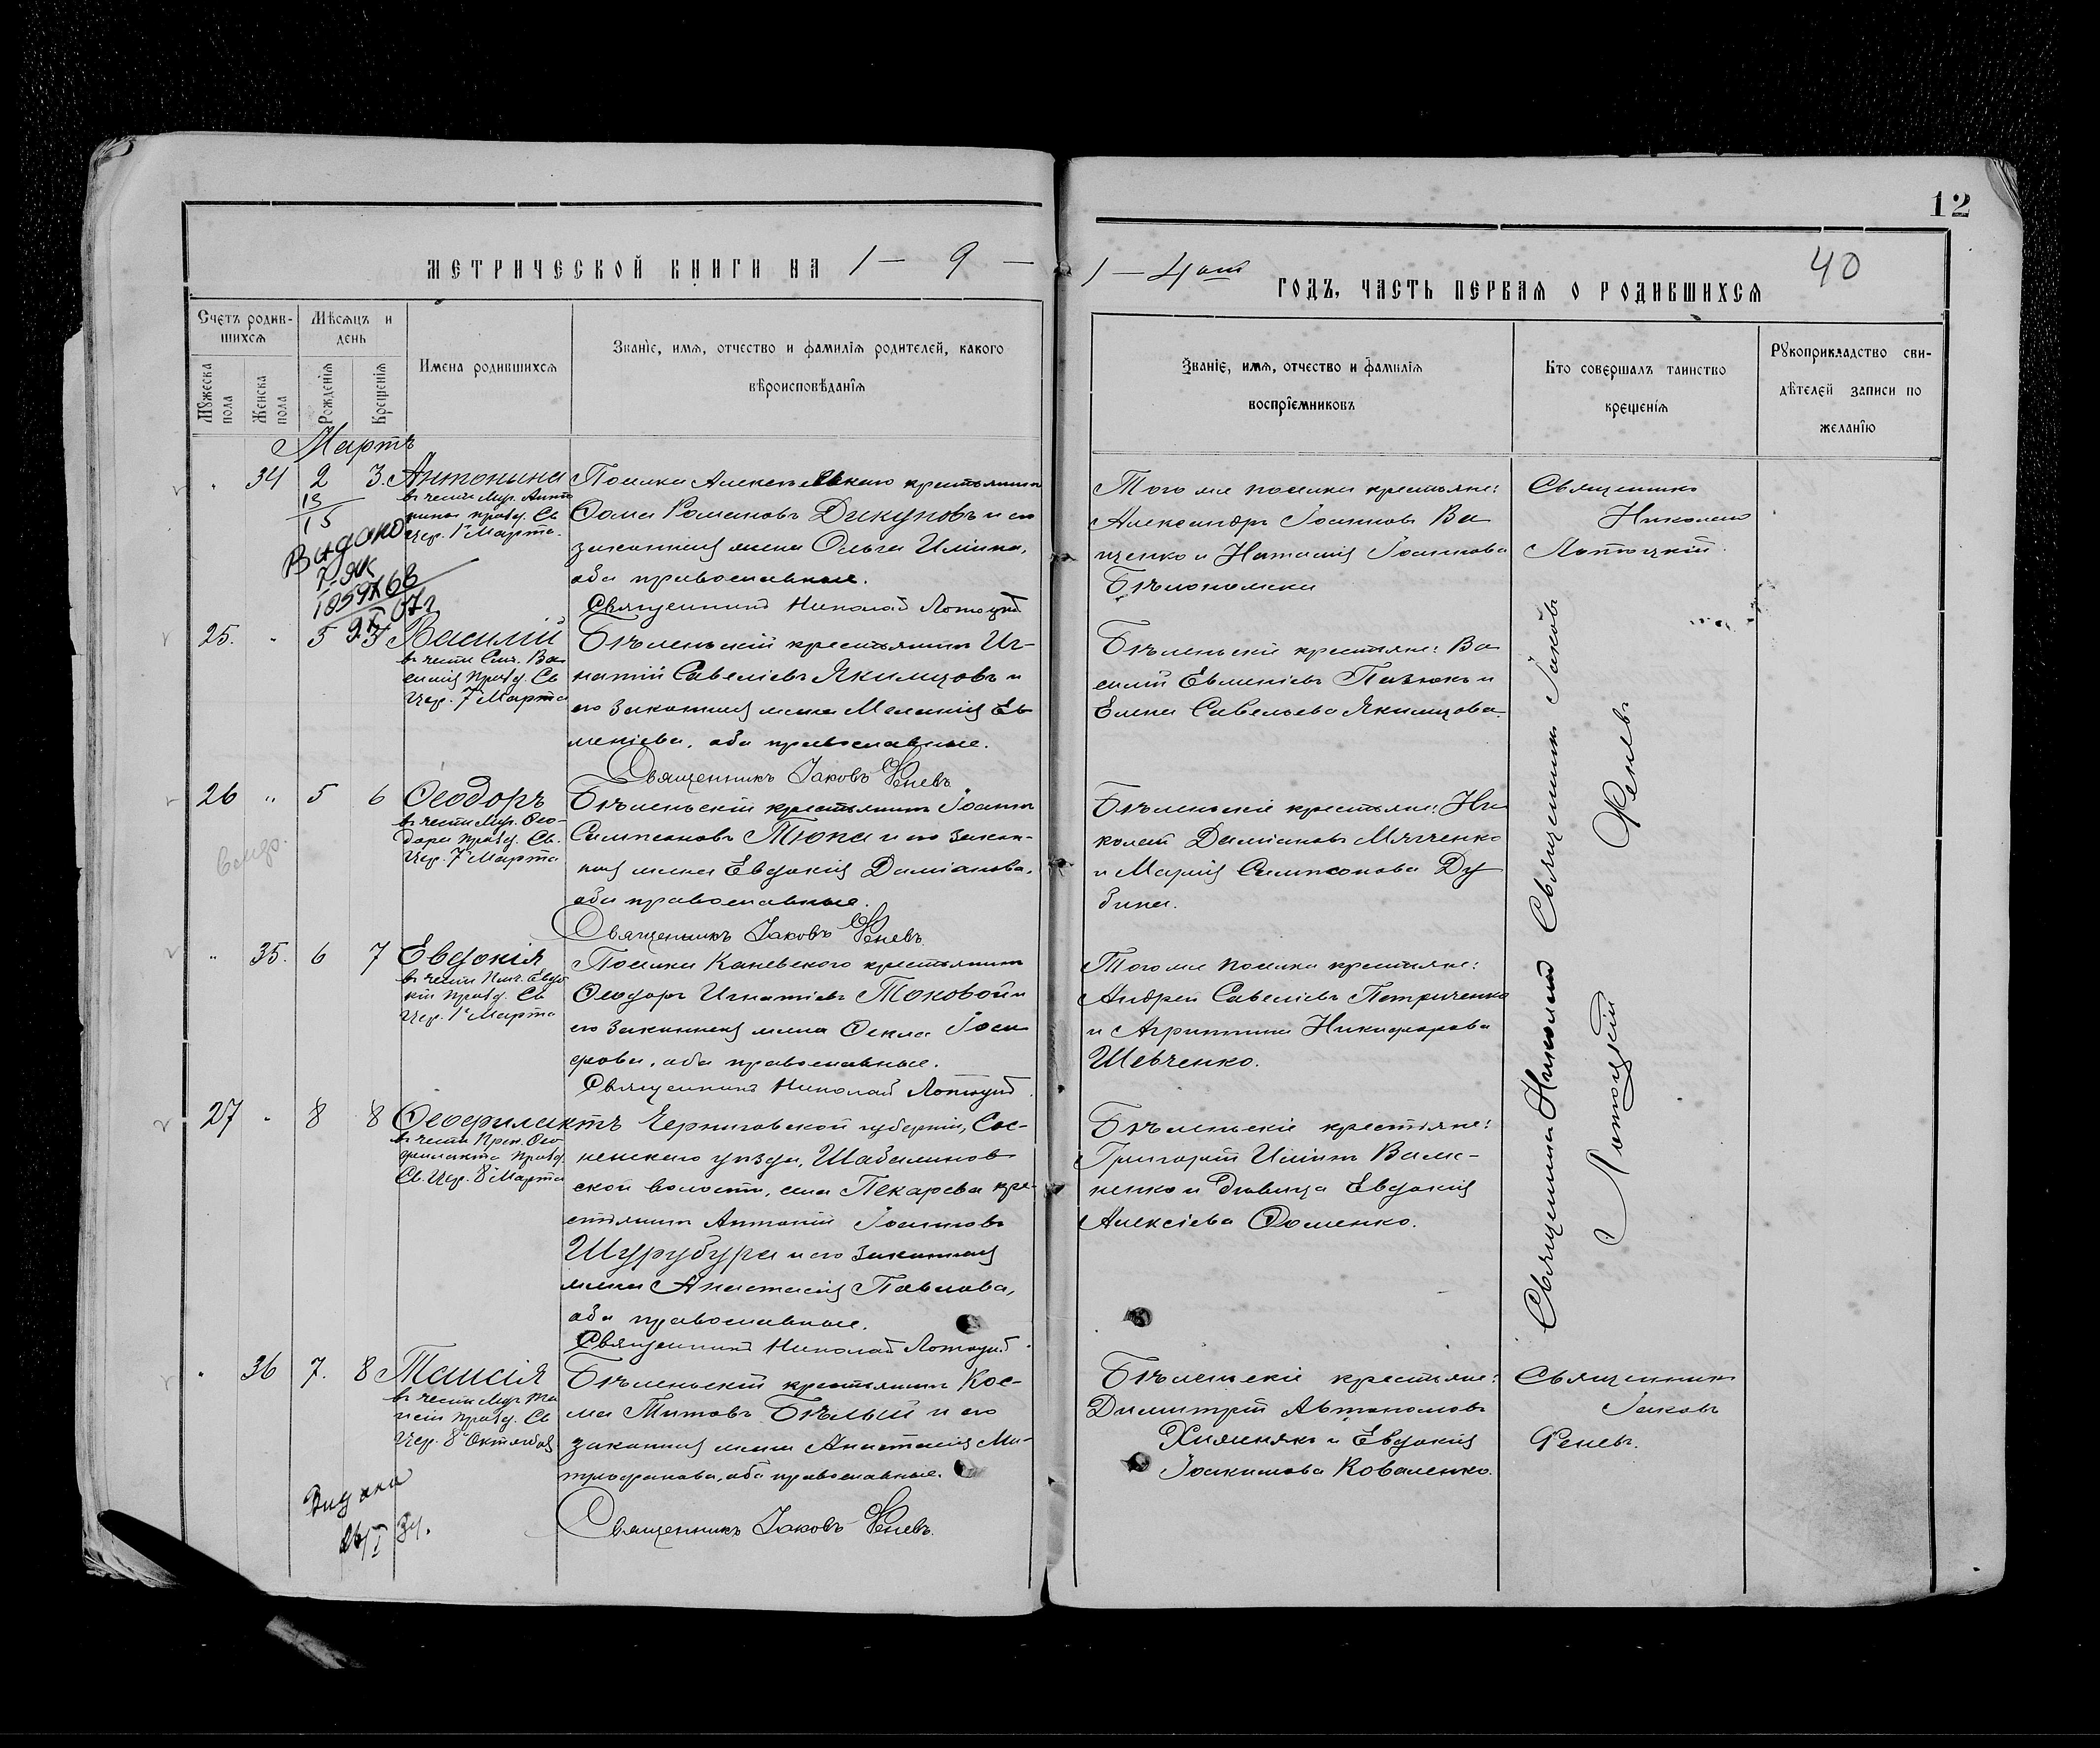 12
40
МЕТРИЧЕСКОЙ КНИГИ НА 1 — 9 —
1 — 4ый ГОДЪ, ЧАСТЬ ПЕРВАЯ О РОДИВШИХСЯ
Счетъ родив-
шихся
Мужеска
пола
Женска
пола
Мѣсяцъ и
день
Рожденія
Крещенія
Имена родившихся
Званіе, имя, отчество и фамилія родителей, какого
вѣроисповѣданія
Званіе, имя, отчество и фамилія
воспріемниковъ
Кто совершалъ таинство
крещенія
Рукоприкладство сви-
дѣтелей записи по
желанію
Мартъ
" 34 2 3. Антонина
въ честь Мур. Анто
нины празд. Св.
Цер. 1го Марта.
13
15
Видано
Поселка крестьянинъ
Ѳома Романовъ Дикуновъ и его
законная жена Ольга Ильина,
оба православные.
Священникъ Николай Лотоцкій
Того же поселка крестьяне:
Александръ Іоанновъ Ва
щенко и Наталія Іоаннова
Священникъ
Николай
Лотоцкій.
25. " 5 Василій
въ честь Свщ. Ва
силія празд. Св.
Цер. 7го Марта
Бѣленьскій крестьянинъ Иг-
натій Савеліевъ Якимцовъ и
его законная жена Меланія Ев
меніева, оба православные.
Священникъ Іаковъ Феневъ
Бѣленьскіе крестьяне: Ва
силій Евменіевъ Пазюкъ и
Елена Савельева Якимцова.
26 " 5 6 Ѳеодоръ
въ честь Мур. Ѳео-
дора празд. Св.
Цер. 7го Марта
Бѣленьскій крестьянинъ Іоаннъ
Сампсоновъ Тюпа и его закон-
ная жена Евдокія Даміанова,
оба православные.
Священникъ Іаковъ Феневъ.
Бѣленьскіе крестьяне: Ни
колай Даміановъ Мяченко
и Марія Сампсонова Ду
бина.
" 35. 6 7 Евдокія
въ честь Прм. Евдо
кіи празд. Св.
Цер. 1го Марта
Поселка Каневского крестьянинъ
Ѳеодоръ Игнатіевъ Токовой и
его законная жена Ѳекла Іоси
фова, оба православные.
Священникъ Николай Лотоцкій
Того же поселка крестьяне:
Андрей Савеліевъ Петриченко
и Агриппина Никифорова
Шевченко.
27 " 8 8 Ѳеофилактъ
въ честь Преп. Ѳео
филакта празд.
Св. Цер. 8го Марта
Черниговской губерніи, Сос-
ницкаго уѣзда, Шабалинов
ской волости, села Пекарева кре-
стьянинъ Антоній Іоанновъ
Шурубура и его законная
жена Анастасія Павлова,
оба православные.
Священникъ Николай Лотоцкій.
Бѣленьскіе крестьяне:
Григорій Ильинъ
и дѣвица Евдокія
Алексіева Ѳоменко.
Священники Николай Лотоцкій
Священникъ Іаковъ Феневъ
" 36 7. 8 Таисія
въ честь Мур. Та
исіи празд. Св.
Цер. 8го Октября
Бѣленьскій крестьянинъ Кос-
ма Титовъ Бѣлый и его
законная жена Анастасія Ми-
трофанова, оба православные.
Священникъ Іаковъ Феневъ.
Бѣленьскіе крестьяне:
Димитрій Автономовъ
Хижнякъ и Евдокія
Іоакимова Коваленко.
Священникъ
Іаковъ
Феневъ.
Видана
26/I 34.